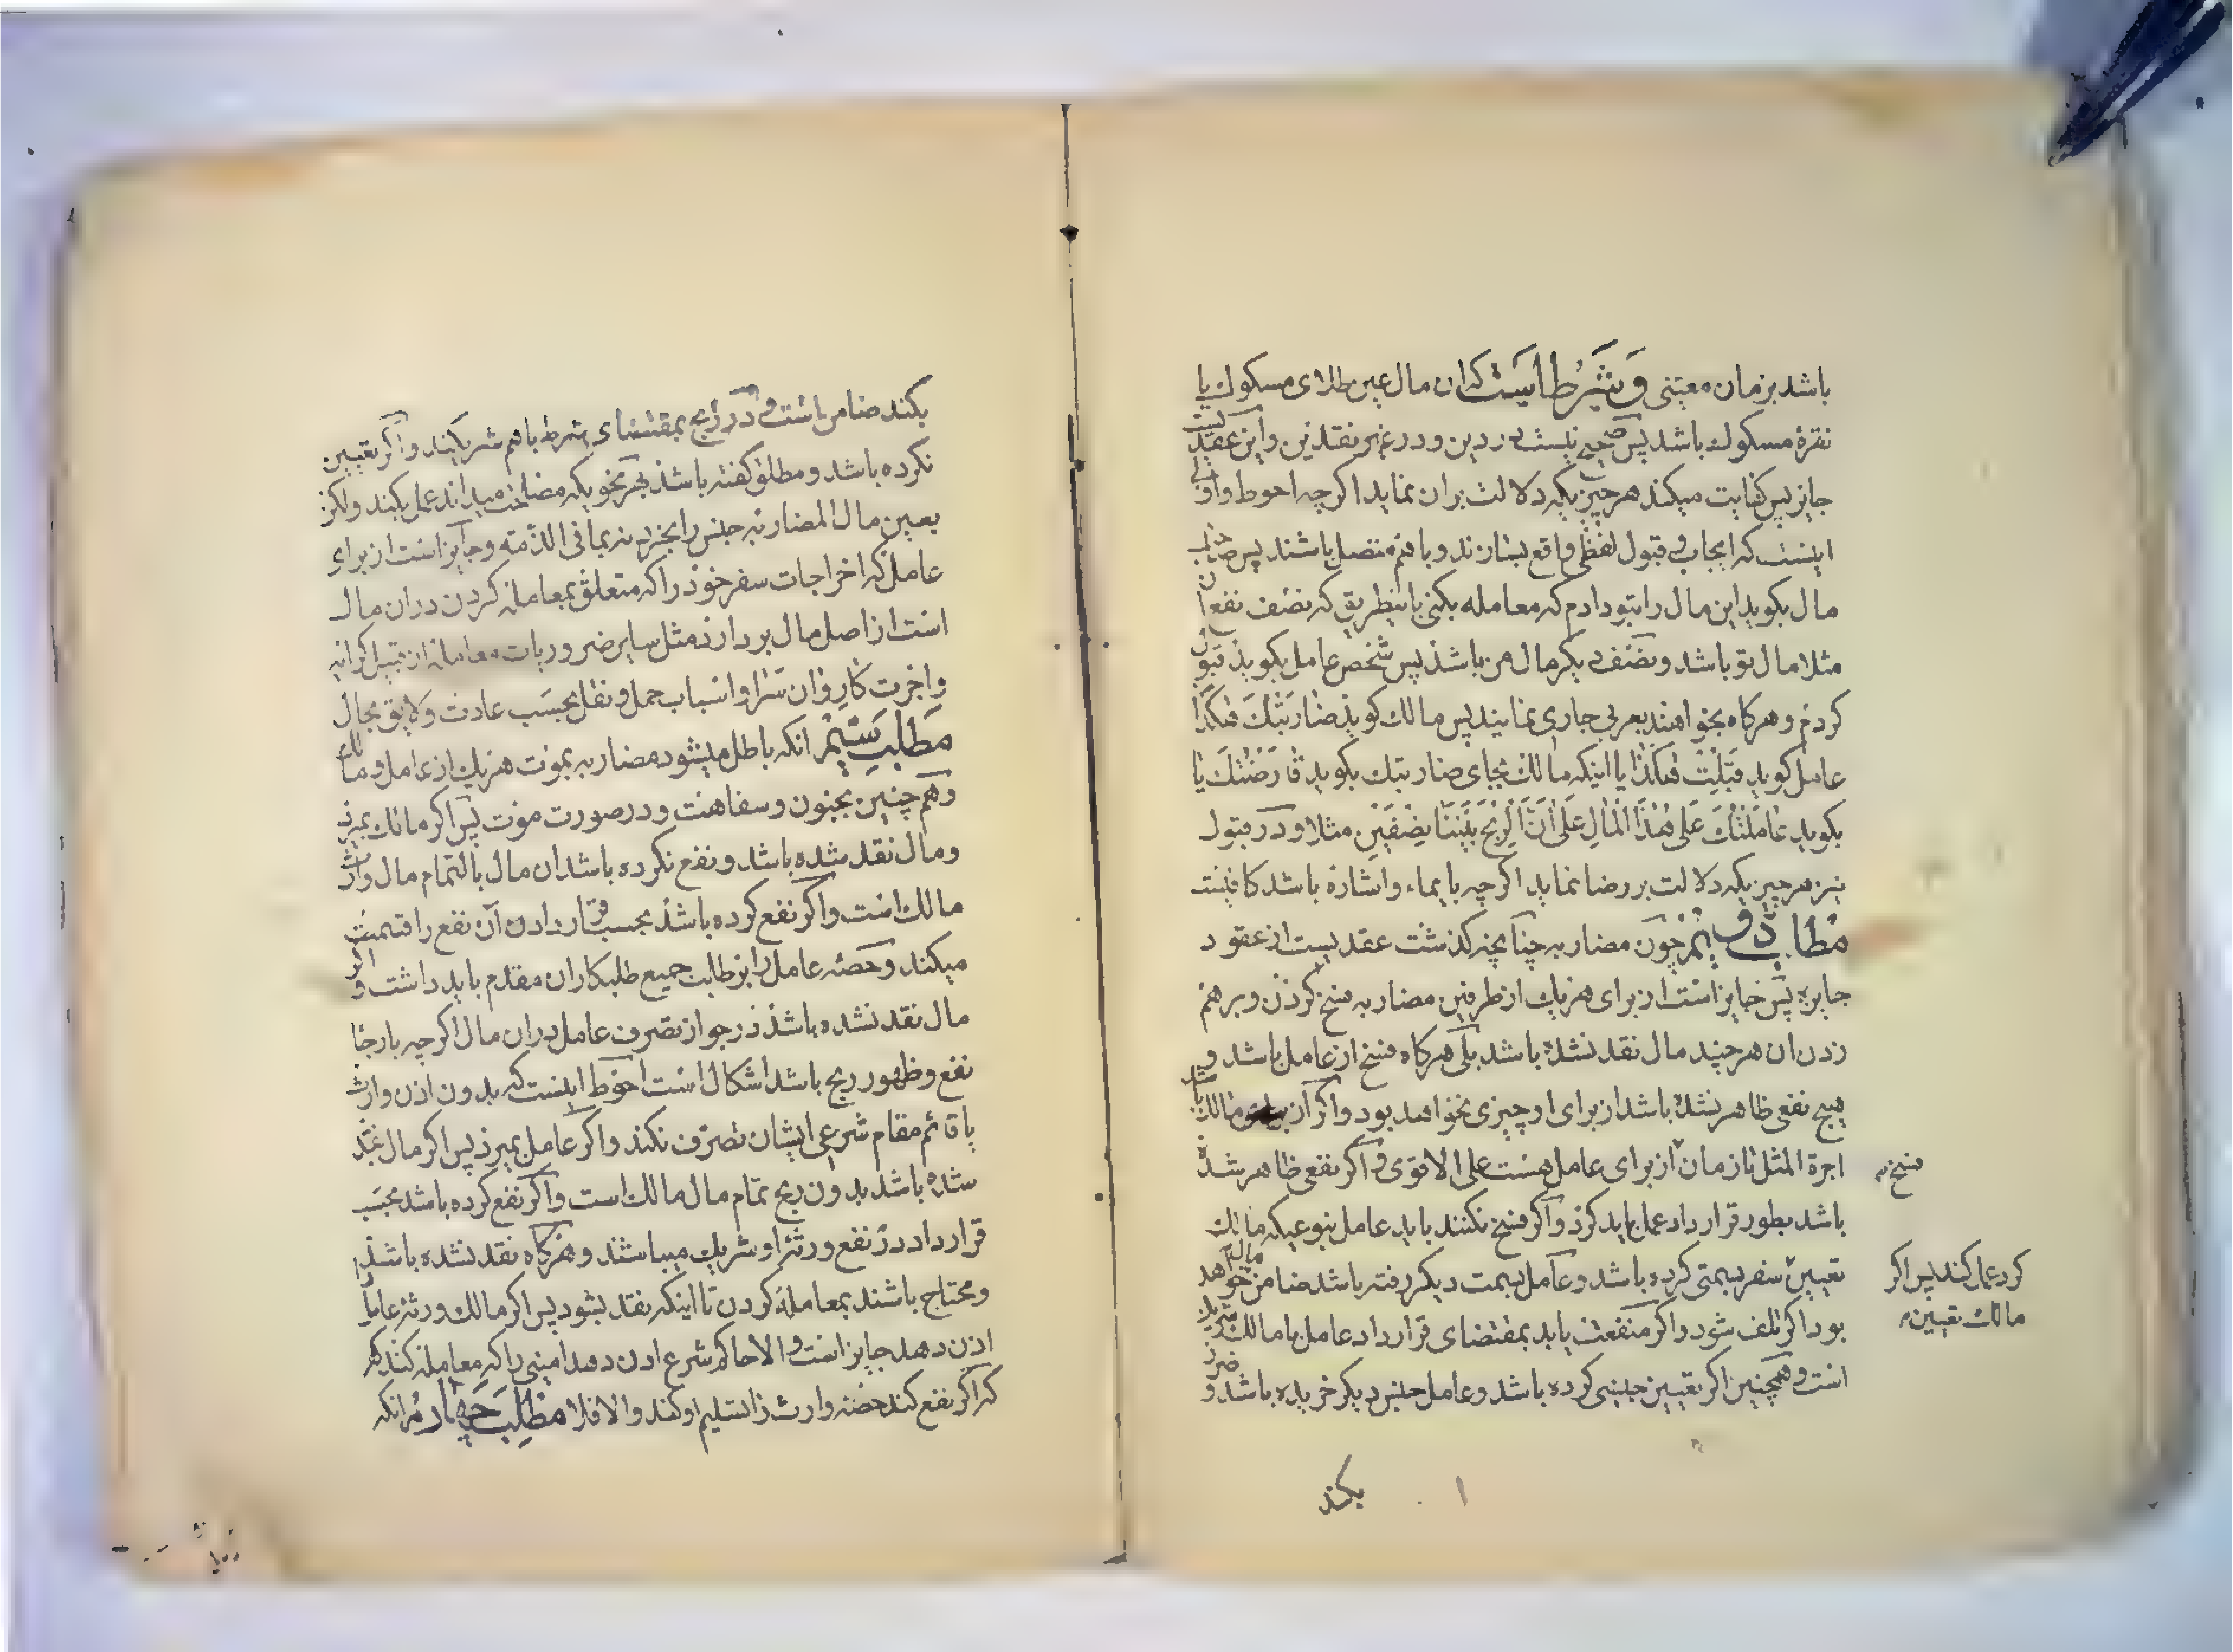 باشد بزمان معینی و شرط است که ان مال عین طلای مسکوک یا
نقرهٔ مسکوک باشد پس صحیح نیست در دین و در غیر نقدین و این عقدیست
جایز پس کفایت میکند هر چیزیکه دلالت بران نماید اکرچه احوط و اولی
اینست که ایجاب و قبول لفظی واقع بسازند و با هم متصل باشند پس صاحب
مال بکوید این مال را بتو دادم که معامله بکنی باینطریق که نصف نفع ان
مثلا مال تو باشد و نصف دیکر مال من باشد پس شخص عامل بکوید قبول
کردم و هرکاه بخواهند بعربی جاری نمایند پس مالک کوید ضاربتک هکذا
عامل کوید قبلت هکذا یا اینکه مالک بجای ضاربتک بکوید قارضتک یا
بکوید عاملتک علی هذا المال علی ان الربح بیننا نصفین مثلا و در قبول
نیز هر چیزیکه دلالت بر رضا نماید اکرچه بایماء و اشاره باشد کافیست
مطلب دویم چون مضاربه چنانچه کذشت عقدیست از عقود
جایزه پس جایز است از برای هر یک از طرفین مضاربه فسخ کردن و بر هم
زدن ان هر چند مال نقد نشده باشد بلی هرکاه فسخ از عامل باشد و
هیچ نفعی ظاهر نشده باشد از برای او چیزی نخواهد بود و اکر از مالک باشد
اجرة المثل تا زمان از برای عامل هست علی الاقوی و اکر نفعی ظاهر شده
فسخ
باشد بطور قرار داد عمل باید کرد و اکر فسخ نکنند باید عامل بنوعیکه مالک
تعیین سفر بسمتی کرده باشد و عامل بسمت دیکر رفته باشد ضامن مال خواهد
کرد عمل کند پس اکر
مالک تعیین
بود اکر تلف شود و اکر منفعت یابد بمقتضای قرار داد عامل با مالک شریک
است و همچنین اکر تعیین جنسی کرده باشد و عامل جنس دیکر خریده باشد و ضرر
بکند
بکند ضامن است و در ربح بمقتضای شرط با هم شریکند و اکر تعیین
نکرده باشد و مطلق کفته باشد بهر نحویکه مصلحت میداند عمل بکند ولکن
بعین مال المضاربه جنس را بخرد نه بما فی الذمه و جایز است از برای
عامل که اخراجات سفر خود را که متعلق بمعامله کردن در ان مال
است از اصل مال بردارد مثل سایر ضروریات معامله از قبیل کرایه
و اجرت کاروان سرا و اسباب حمل و نقل بحسب عادت و لایق بحال
مطلب سیم انکه باطل میشود مضاربه بموت هر یک از عامل و مالک
و هم چنین بجنون و سفاهت و در صورت موت پس اکر مالک بمیرد
و مال نقد شده باشد و نفع نکرده باشد ان مال بالتمام مال وارث
مالک است و اکر نفع کرده باشد بحسب قرار دادن آن نفع را قسمت
میکند و حصهٔ عامل را بر طلب جمیع طلبکاران مقدم باید داشت و اکر
مال نقد نشده باشد در جواز تصرف عامل در ان مال اکرچه با رجا
نفع و ظهور ربح باشد اشکال است احوط اینست که بدون اذن وارث
یا قائم مقام شرعی ایشان تصرف نکند و اکر عامل بمیرد پس اکر مال نقد
شده باشد بدون ربح تمام مال مالک است و اکر نفع کرده باشد بحسب
قرار داد در نفع ورثهٔ او شریک میباشند و هرکاه نقد نشده باشد
و محتاج باشند بمعامله کردن تا اینکه نقد بشود پس اکر مالک ورثهٔ عامل را
اذن دهد جایز است و الا حاکم شرع اذن دهد امینی را که معامله کند
که اکر نفع کند حصهٔ وارث را تسلیم او کند و الا فلا مطلب چهارم انکه